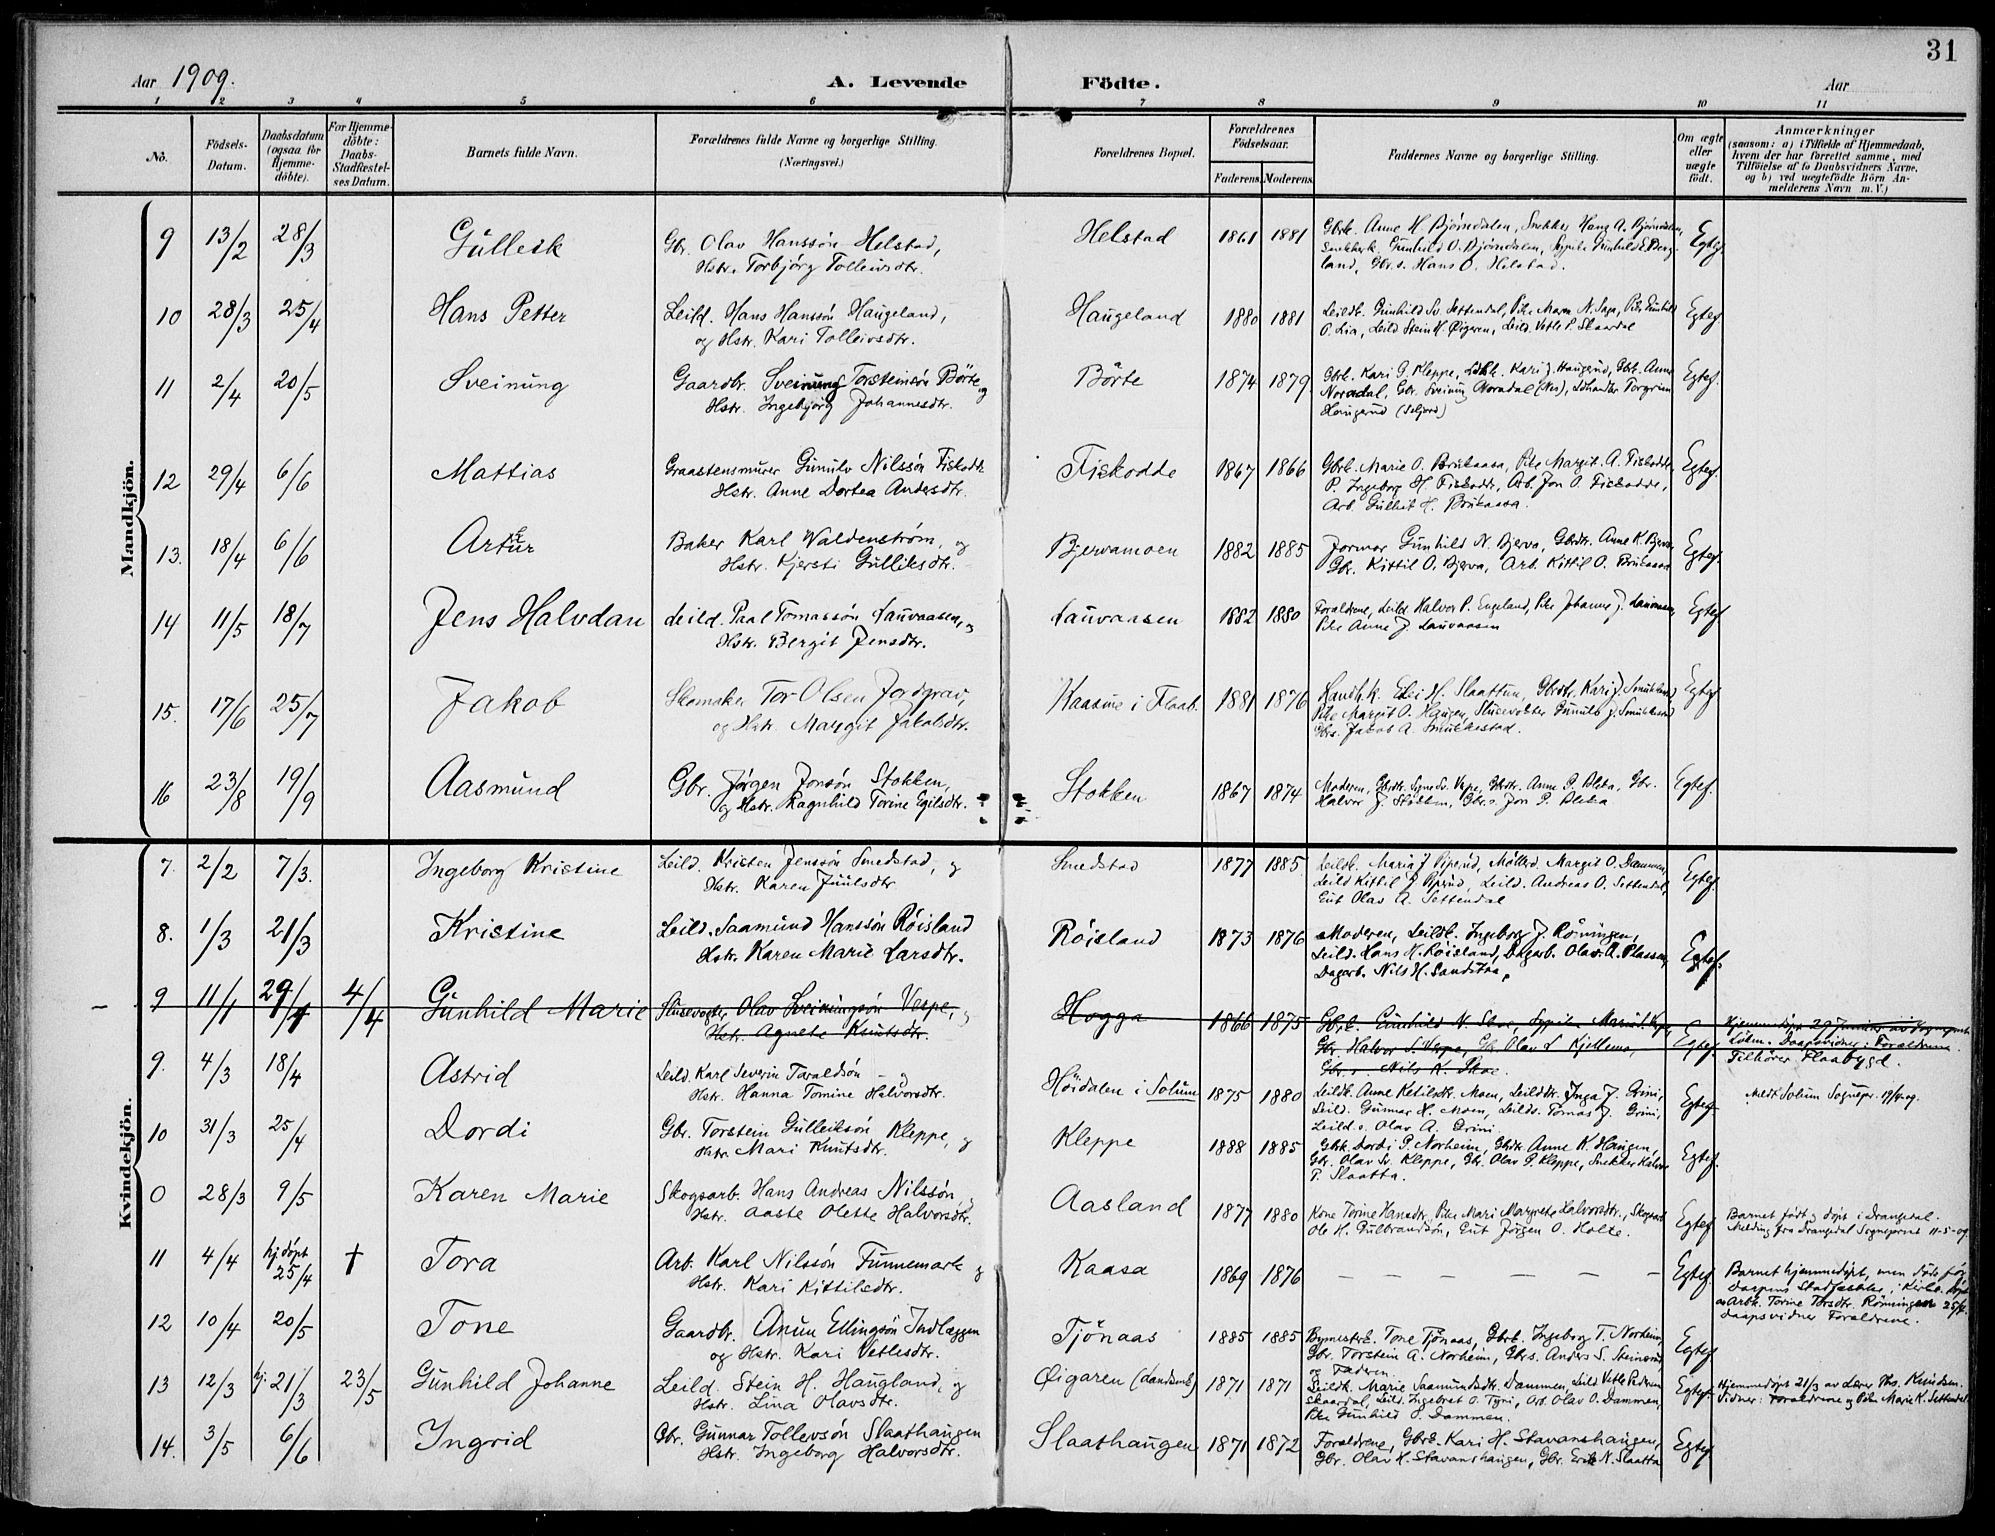 31
Aar 1909.
A. Levende Födte.
Aar
1 2 3 4 5 6 7 8 9 10 11
No.
Födsels-Datum.
Daabsdatum (ogsaa for Hjemme-döbte).
For Hjemme-döbte: Daabs-Stadfæstel-ses Datum.
Barnets fulde Navn.
Forældrenes fulde Navne og borgerlige Stilling.
(Næringsvei.)
Forældrenes Bopæl.
Forældrenes Födselsaar.
Faderens. Moderens.
Faddernes Navne og borgerlige Stilling.
Om ægte eller uægte födt.
Anmærkninger
(saasom: a) i Tilfælde af Hjemmedaab,
hvem der har forrettet samme, med
Tilföielse af to Daabsvidners Navne,
og b) ved uægtefödte Börn An-
melderens Navn m. V.)
Mandkjön.
9 13/2 28/3 Gulleik Gbr. Olav Hanssön Helstad, Helstad 1861 1881 Gbrk. Anne H. Bjørndalen, Snekker Hans A. Bjørndalen, Egtef.
Hstr. Torbjörg Tolleivsdtr. Snekkerk. Gunhild O. Bjørndalen,
land, Gbr.s. Hans O. Helstad.
10 28/3 25/4 Hans Petter Leild. Hans Hanssön Haugeland, Haugeland 1880 1881 Leildk. Gunhild Sv. Settendal, Pike Maren N. Egtef.
og Hstr. Kari Tolleivsdtr. O. Lia, Leild Stein H. Øigaren, Leild. Vetle P. Skaardal
11 2/4 20/5 Sveinung Gaardbr. Sveinung Torsteinsön Börte og Börte 1874 1879 Gbrk. Kari G. Kleppe, Kari J. Haugerud, Gbrk. Anne Egtef.
Hstr. Ingebjörg Johannesdtr. Noradal, Gbr. Sveinung Noradal (Nes), Torgrim
Haugerud (Seljord)
12 29/4 6/6 Mattias Graastensmurer Gunulv Nilssön Fiskodde Fiskodde 1867 1866 Gbrk. Marie O. Brukaasa, Pike Margit A. Fiskodde, Egtef.
Hstr. Anne Dortea Andersdtr. P. Ingeborg H. Fiskodde, Arb. Jon O. Fiskodde,
Arb. Gullik H. Brukaasa.
13. 18/4 6/6 Artur Baker Karl Waldenström, og Bjervamoen 1882 1885 Jormor Gunhild N. Bjerva, Gbrdtr. Anne K. Bjerva, Egtef.
Hstr. Kjersti Gulliksdtr. Gbr. Kittil O. Bjerva, Arb. Kittil O. Brukaasa
14 11/5 18/7 Jens Halvdan Leild. Paal Tomassön Lauvaasen, og Lauvaasen 1882 1880 Forældrene, Leild. Halvor P. Engeland, Pike Johanne J. Lauvaasen, Egtef.
Hstr. Bergit Jensdtr. Pike Anne J. Lauvaasen
15. 17/6 25/7 Jakob Skomaker Tor Olsen Jordgrav, Kaasine i Flaab. 1881 1876 H. Slaattun, Gbrdtr. Kari J. Egtef.
og Hstr. Margit Jakobsdtr. Pike Margit O. Haugen, Slusevokter Gunulv J.
Gbrs. Jakob A.
16 23/8 19/9 Aasmund Gbr. Jørgen Jonsön Stokken, Stokken 1867 1874 Moderen, Gbrdtr. Signe Sv. Vepe, Gbrdtr. Anne G. Bleka, Gbr. Egtef.
og Hstr. Ragnhild Torine Egilsdtr. Halvor J. Stokken, Gbr.s. Jon G. Bleka
Kvindekjön.
7. 2/2 7/3. Ingeborg Kristine Leild. Kristen Jenssön Smedstad, og Smedstad 1877 1885 Leildk. Maria J. Piperud, Margit O. Dammen, Egtef.
Hstr. Karen Juulsdtr. Leild Kittil J. Piperud, Leild. Andreas O. Settendal,
Gut Olav A. Settendal
8. 1/3 21/3 Kristine Leild. Saamund Hanssön Röisland Röisland 1873 1876 Moderen, Leildk. Ingeborg J. Rönningen, Egtef.
Hstr. Karen Marie Larsdtr. Leild. Hans H. Röisland, Dagarb. Olav A. Plassen,
Dagarb. Nils H. Sandstaa,
9 11/1 29/1 4/4 Gunhild Marie Slusevogter Olav Sveinungsön Vespe, og Hogga 1866 1875 Gbrk. Gunhild N. Skoe, Egtef. Hjemmedøpt 29 Januar av Sognepræst
Hstr. Agnete Knutsdtr. Gbr. Halvor S. Vespe, Gbr. Olav L. Kjeldemo, Daapsvidner: Forældrene.
Gbr. s. Nils K. Skoe. Tilhører Flaabygd.
9. 4/3 18/4 Astrid Leild. Karl Severin Taraldsön og Höidalen i Solum 1875 1880 Leildk. Anne Ketilsdtr. Moen, Leildtr. Inga J. Grini, Egtef. Meldt Solum Sognepr. 19/4 09.
Hstr. Hanna Tomine Halvorsdtr. Leild. Gunnar H. Moen, Leilds. Tomas J. Grini,
Leild.s. Olav A. Grini.
10 31/3 25/4 Dordi Gbr. Torstein Gulleiksön Kleppe, og Kleppe 1888 1885 Gbrk. Dordi P. Norheim, Gbrdtr. Anne K. Haugen, Egtef.
Hstr. Mari Knutsdtr. Gbr. Olav Sv. Kleppe, Gbr. Olav G. Kleppe, Snekker Halvor
P. Slaatta.
0 28/3 9/5 Karen Marie Skogsarb. Hans Andreas Nilssön, og Aasland 1877 1880 Kone Torine Hansdtr., Pike Mari Margrete Halvorsdtr., Skogsarb. Egtef. Barnet født og døpt i Drangedal.
Hstr. Aaste Olette Halvorsdtr. Ole H. Gulbrandsön, Gut Jörgen O. Holte. Melding fra Drangedal Sogneprest 11-5-09.
11 4/4 hj. døpt 25/4 † Tora Arb. Karl Nilssön Funnemark og Kaasa 1869 1876 — — — — — — Egtef. Barnet hjemmedøpt, men døde før
Hstr. Kari Kittilsdtr. Daapens Stadfæstelse, i Kirke. Døpt
av Arbk. Torine Torsdtr. Rönningen 25/4.
Daapsvidner Forældrene.
12 10/4 20/5 Tone Gaardbr. Anun Ellingsön Indlæggen Tjönaas 1885 1885 Bymestrk. Tone Tjönaas, Gbrk. Ingeborg T. Norheim, Egtef.
og Hstr. Kari Vetlesdtr. Gbr. Torstein A. Norheim, Gbrs. Anders S.
og Faderen.
13 12/3 hj. 21/3 23/5 Gunhild Johanne Leild. Stein H. Haugland, og Øigaren 1871 1871 Leildk. Marie Saamundsdtr. Dammen, Leild Vetle Pedersen Egtef. Hjemmedøpt 21/3 av Lærer Ths. Knudsen.
Hstr. Lina Olavsdtr. Skaardal, Leild. Ingebret O. Tyri, Arb. Olav O. Dammen, Vidner: Forældrene og Pike Marie K. Settendal.
Pike Gunhild O. Dammen.
14. 3/5 6/6 Ingrid Gbr. Gunnar Tollevsön Slaathaugen Slaathaugen 1871 1872 Forældrene, Gbrk. Kari H. Stavanshaugen, Egtef.
Hstr. Ingeborg Halvorsdtr. Gbr. Olav H. Stavanshaugen, Gbr. Erik N. Slaatta